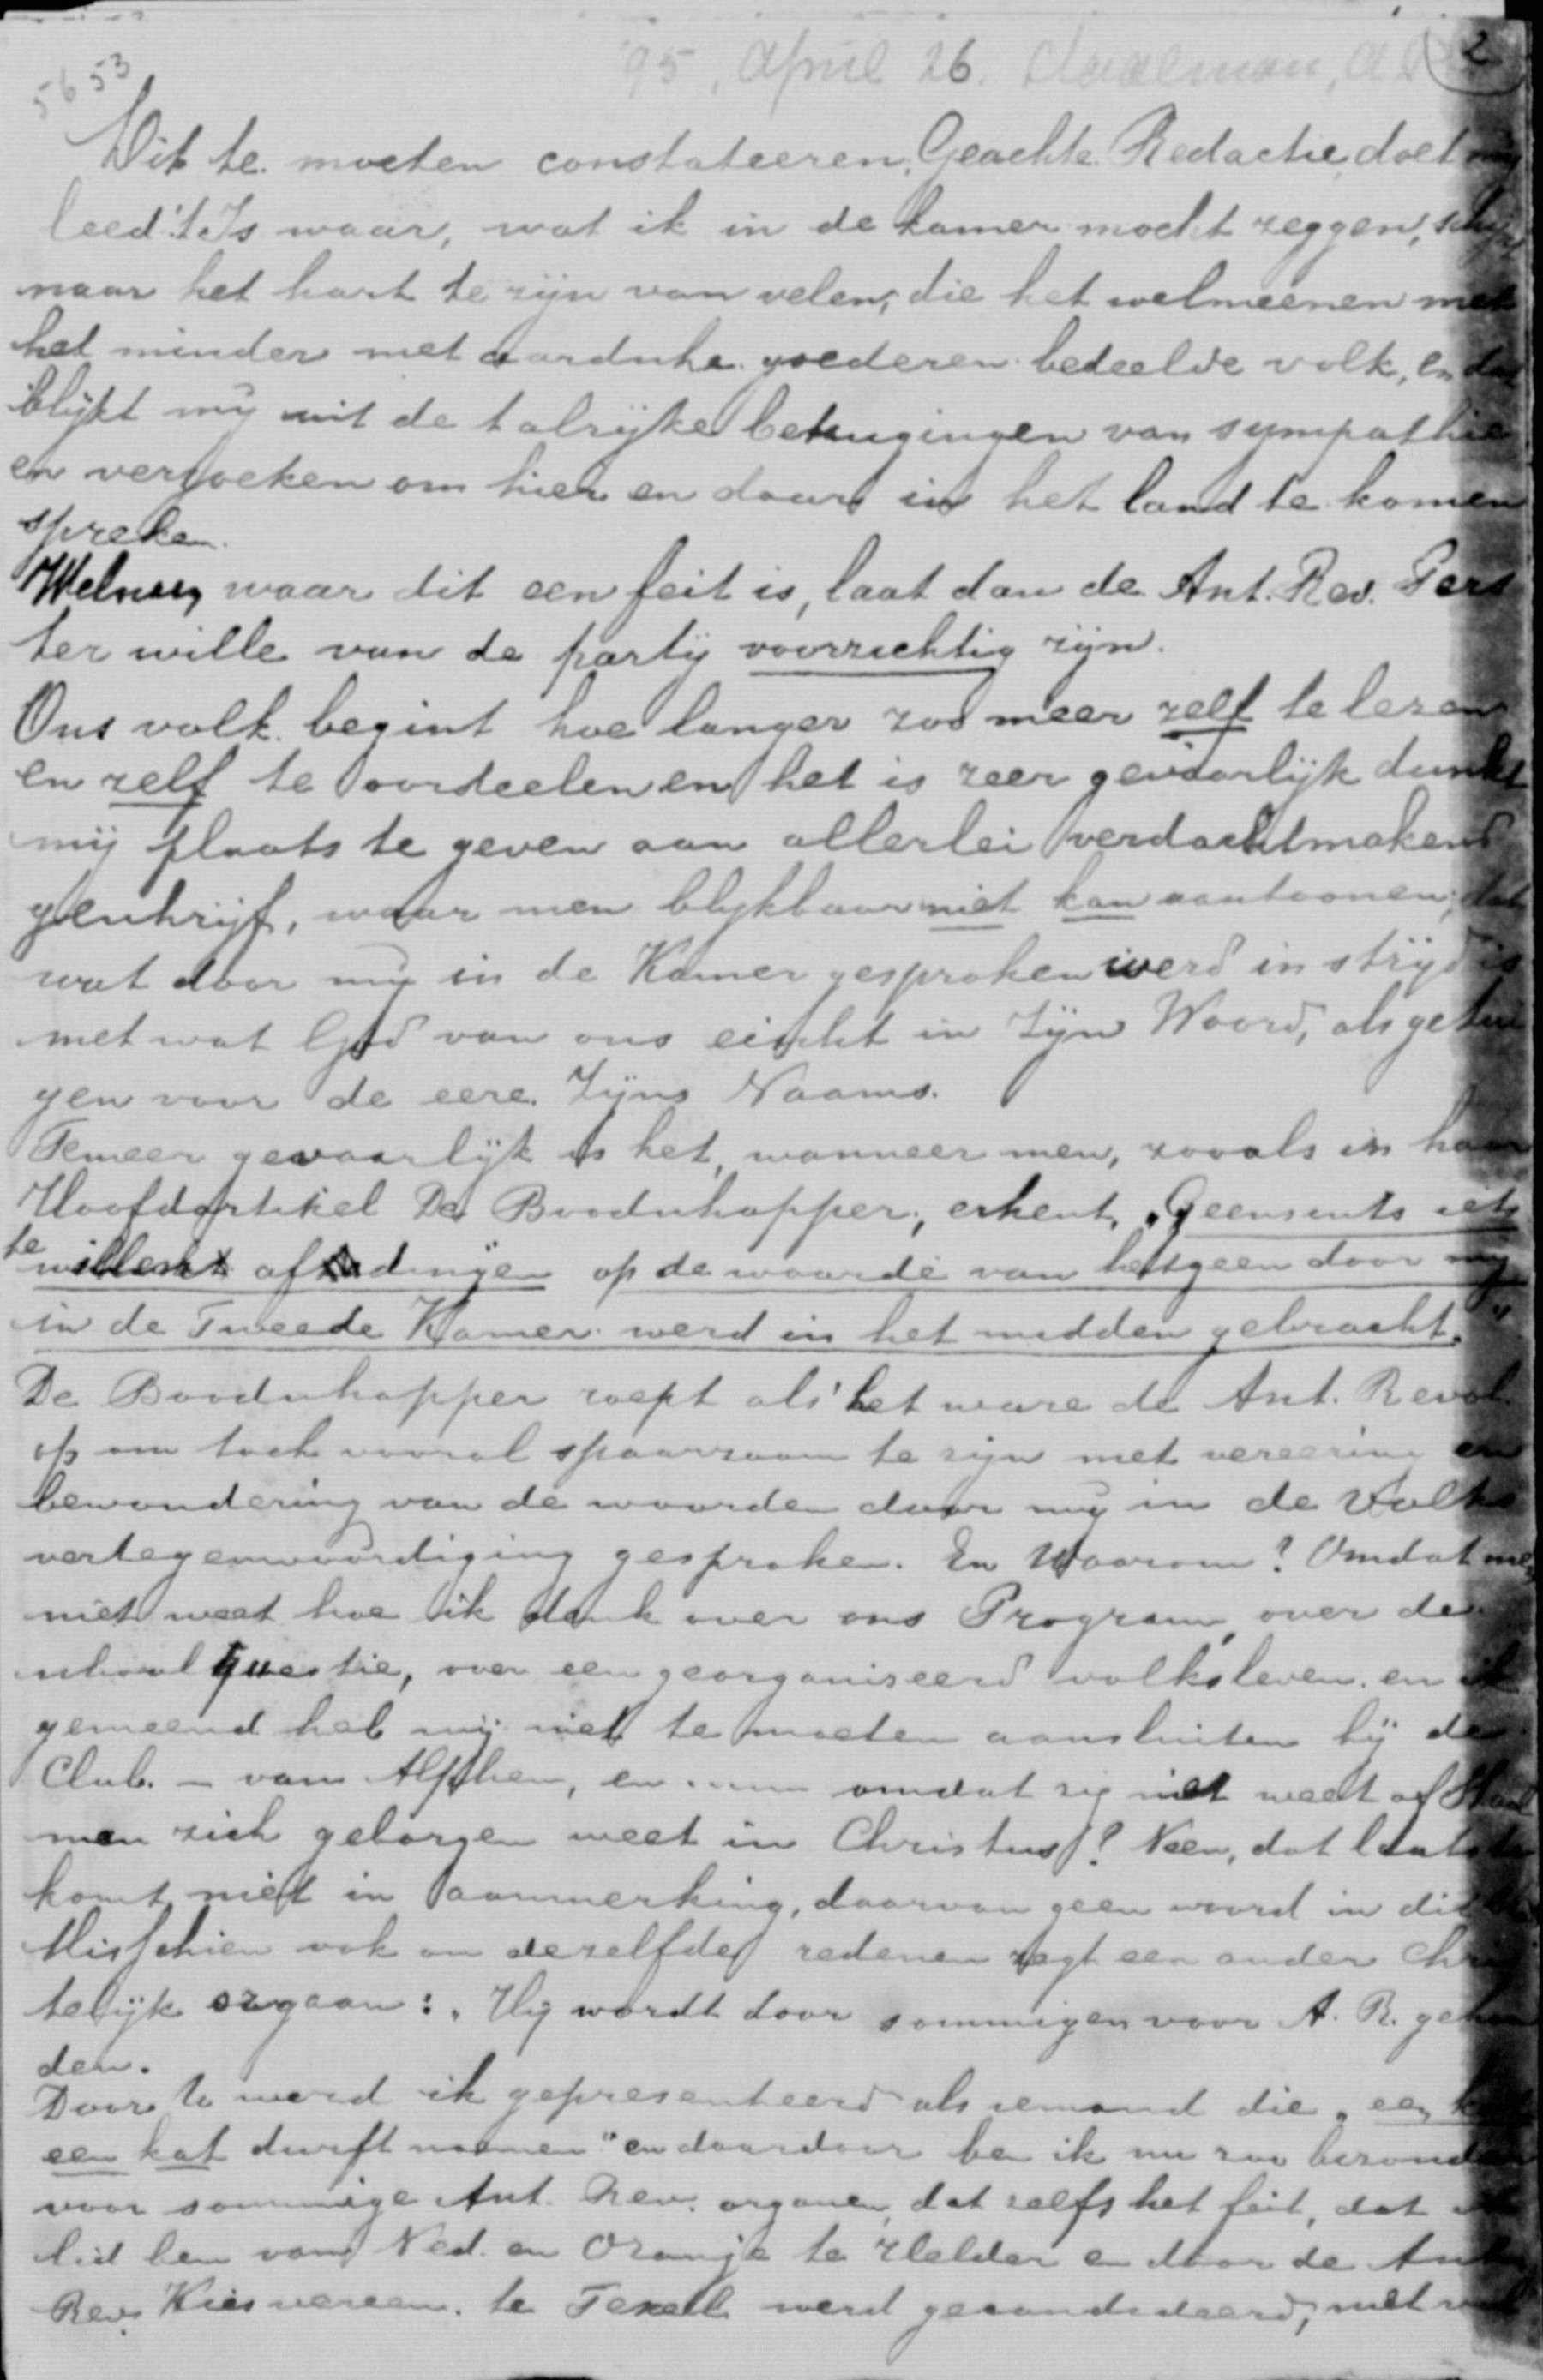 5653
'95, April 26. Staalman, A. P.
2
Dit te moeten constateeren, Geachte Redactie, doet mij
leed. 't Is waar, wat ik in de kamer mocht zeggen, schijnt
naar het hart te zijn van velen, die het welmeenen met
het minder met aardsche goederen bedeelde volk, en dat
blijkt mij uit de talrijke betuigingen van sympathie
en verzoeken om hier en daar in het land te komen
spreken.
Welnu, waar dit een feit is, laat dan de Ant. Rev. Pers
ter wille van de partij voorzichtig zijn.
Ons volk begint hoe langer zoo meer zelf te lezen
en zelf te oordeelen en het is zeer gevaarlijk dunkt
mij plaats te geven aan allerlei verdachtmakend
geschrijf, waar men blijkbaar niet kan aantoonen, dat
wat door mij in de Kamer gesproken werd in strijd is
met wat God van ons eischt in Zijn Woord, als getui
gen voor de eere Zijns Naams.
Temeer gevaarlijk is het, wanneer men, zooals in haar
Hoofdartikel De Boodschapper, erkent, „Geenszints iets
te willen afdingen op de waarde van hetgeen door mij
in de Tweede Kamer werd in het midden gebracht."
De Boodschapper roept als 't ware de Ant. Revol.
op om toch vooral spaarzaam te zijn met vereering en
bewondering van de woorden door mij in de Volks
vertegenwoordiging gesproken. En Waarom? Omdat men
niet weet hoe ik denk over ons Program, over de
schoolquestie, over een georganiseerd volksleven en ik
gemeend heb mij niet te moeten aansluiten bij de
Club - van Alphen, en omdat zij niet weet of Staal
man zich geborgen weet in Christus? Neen, dat laatste
komt niet in aanmerking, daarvan geen woord in dit
Misschien ook om dezelfde redenen zegt een ander Chris
telijk orgaan: „Hij wordt door sommigen voor A. R. gehou
den.
Door U werd ik gepresenteerd als iemand die „een kat
een kat durft noemen" en daardoor ben ik nu zoo bizonder
voor sommige Ant. Rev. organen, dat zelfs het feit, dat ik
lid ben van Ned. en Oranje te Helder en door de Ant.
Rev. Kiesvereen. te Texel werd gecandideerd, niet